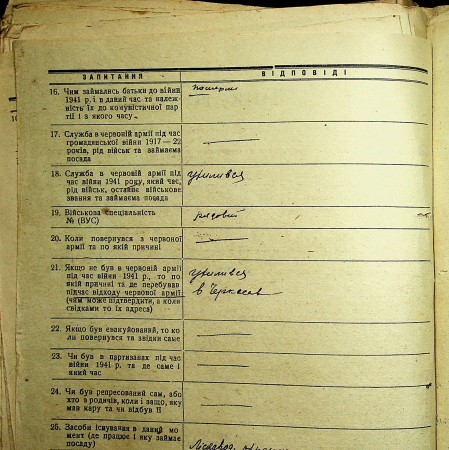 ЗАПИТАННЯ
ВІДПОВІДІ
16. Чим займались батьки до війни
1941 р. і в даний час та належ-
ність їх до комуністичної пар-
тії і з якого часу.
померли
17. Служба в червоній армії під час
громадянської війни 1917—22
років, рід військ та займаєма
посада
18. Служба в червоній армії під
час війни 1941 року, який час,
рід військ, останнє військове
звання та займаєма посада
19. Військова спеціальність
№ (ВУС)
рядовий
20. Коли повернувся з червоної
армії та по якій причині
21. Якщо не був в червоній армії
під час війни 1941 р., то по
якій причині та де перебував
підчас відходу червоної армії
(чим може підтвердити, а коли
свідками то їх адреса)
в Черкасах
22. Якщо був евакуйований, то ко
ли повернувся та звідки саме
23. Чи був в партизанах під час
війни 1941 р. та де саме і
який час
24. Чи був репресований сам, або
хто з родичів, коли і защо, яку
мав кару та чи відбув її
25. Засоби існування в даний мо
мент (де працює і яку займає
посаду)